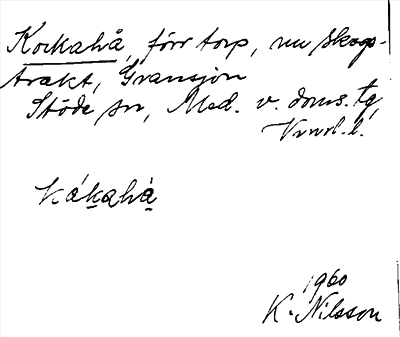 Kockahå, förr torp, nu skogs-
trakt, Gransjön
Stöde sn, Med. v. doms. tg
Vnrl. l.
kákahà
1960
K. Nilsson